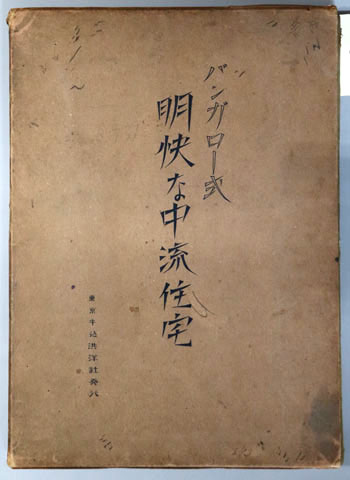 バンガロー式
明快な中流住宅
東京牛込洪洋社発行